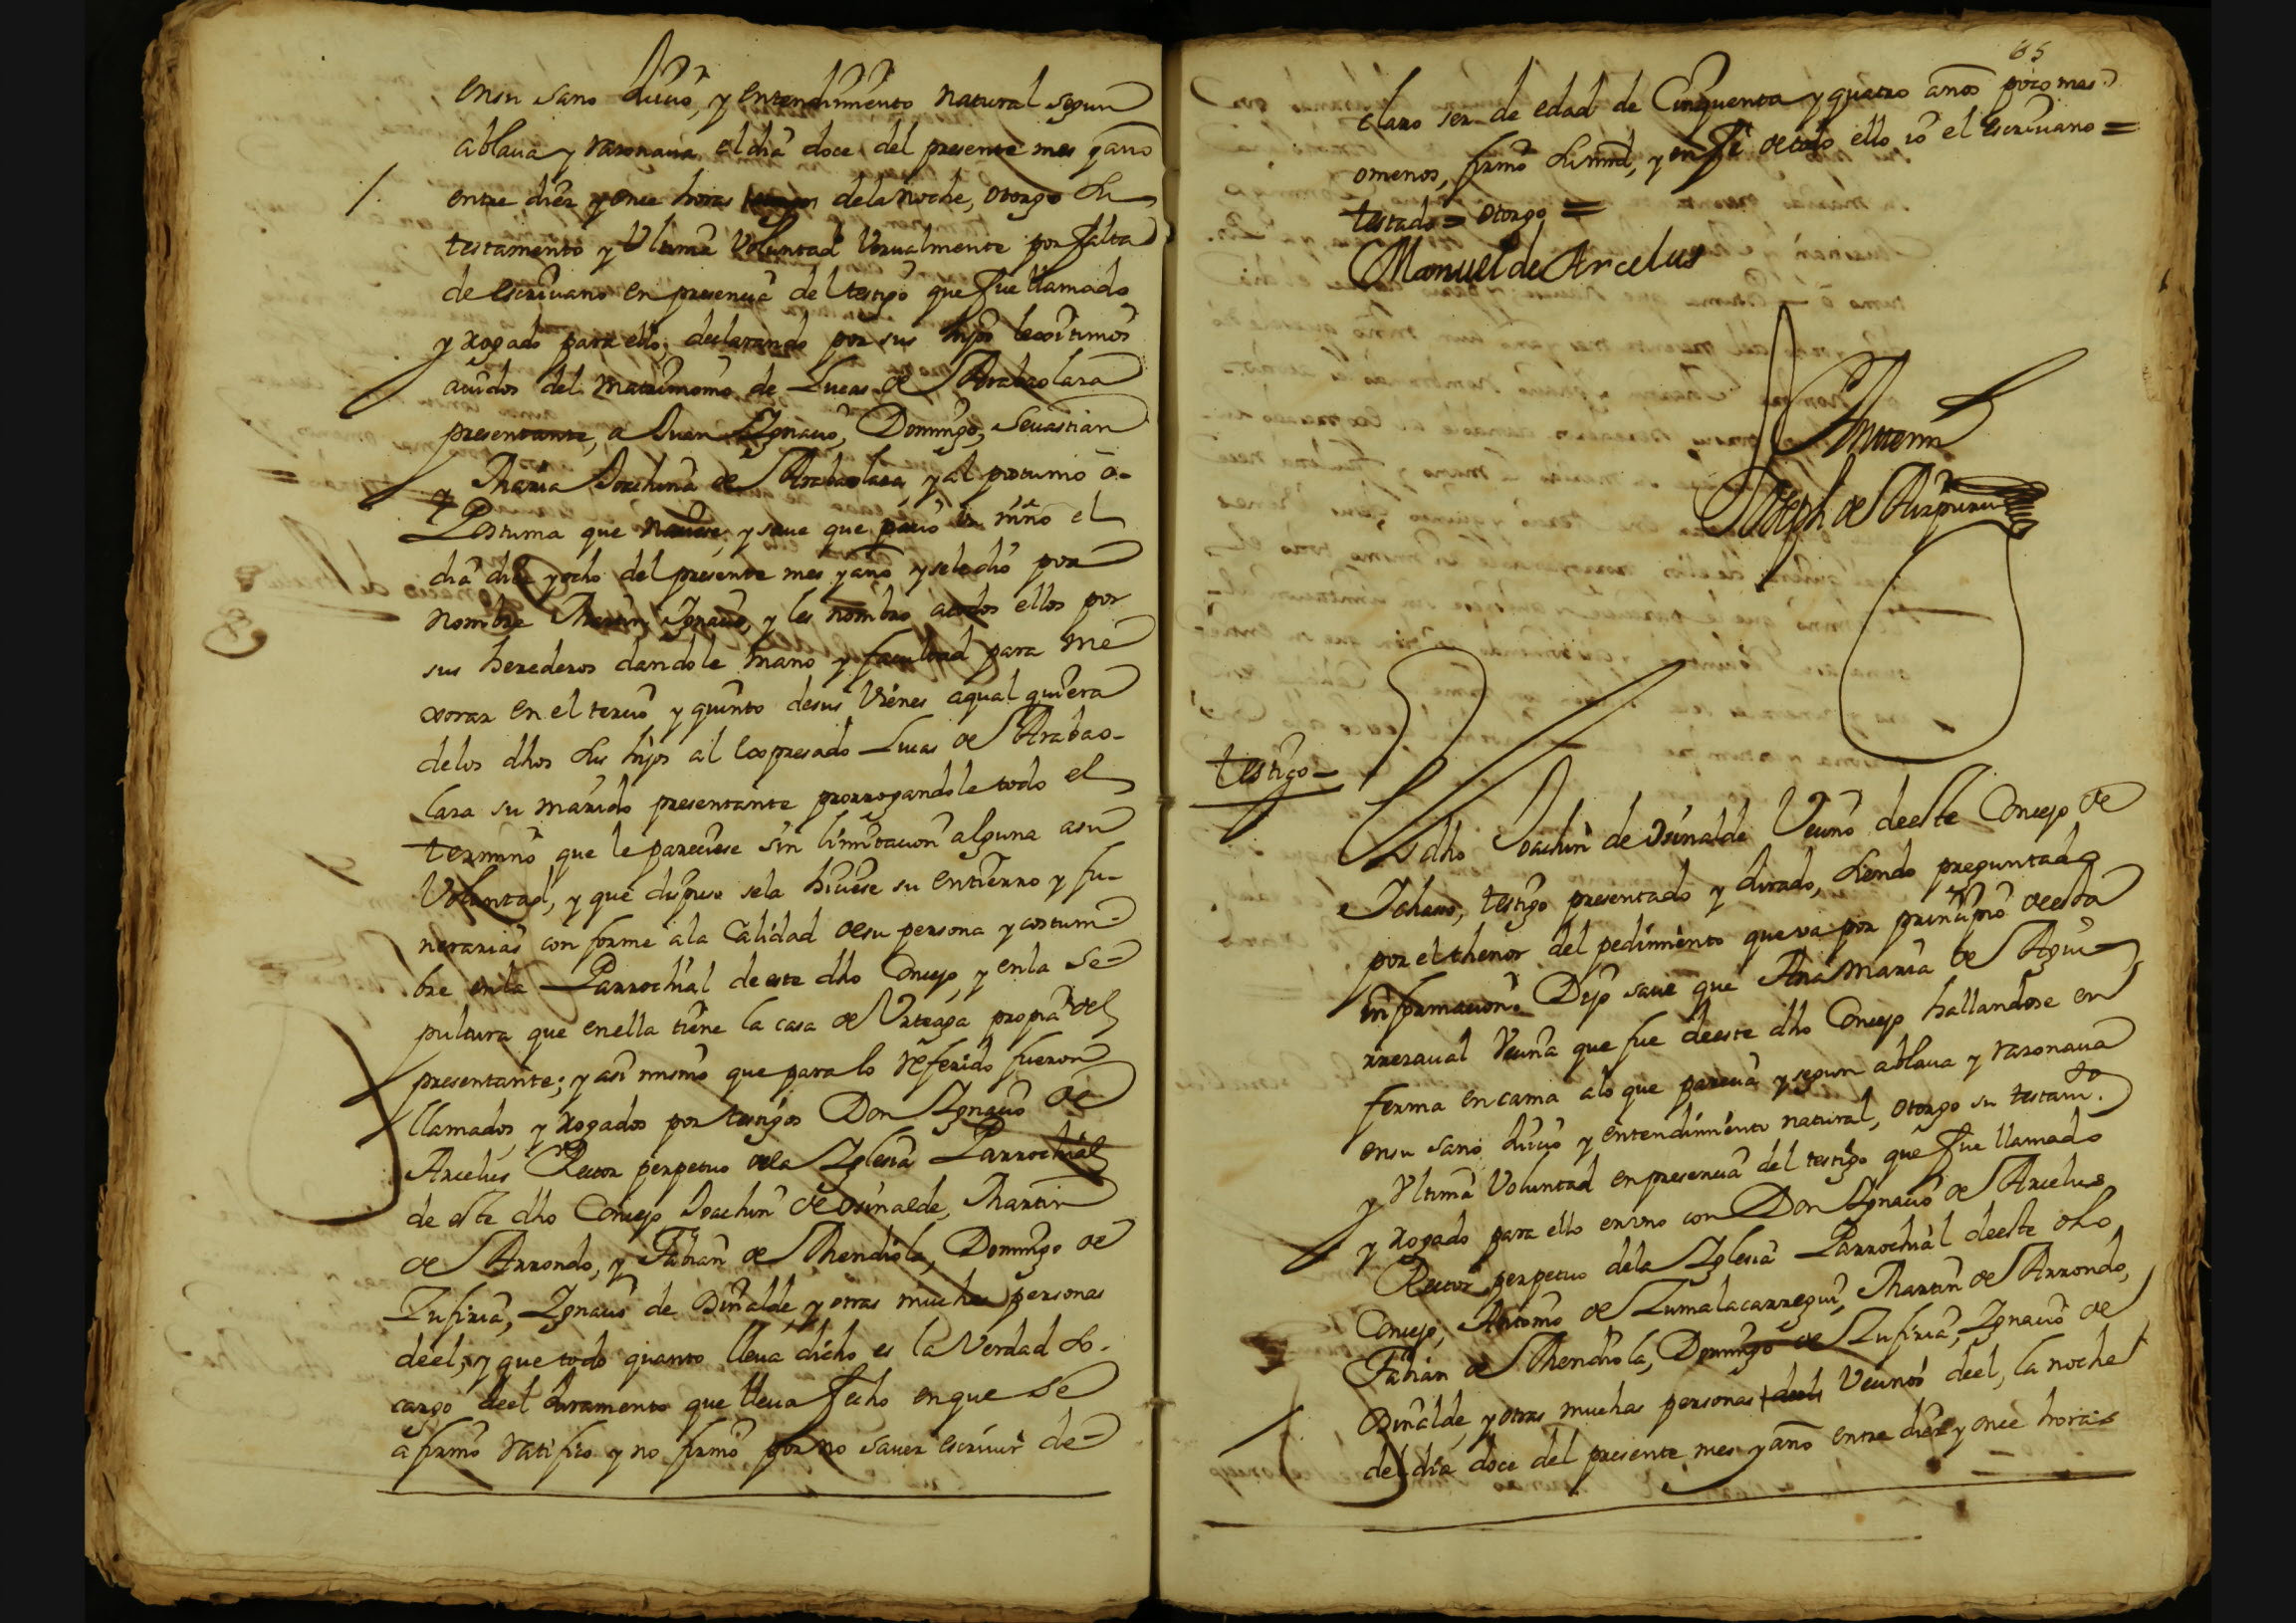 ensu sano Juicio, y entendimiento natural segun
ablaua y rasonaua el dia doce del presente mes y año
entre diez y once horas dela noche, otorgo su
testamento y Ultima Voluntad Verualmente por falta
de escriuano en presencia del testigo que fue llamado
y rogado para ello, declarando por sus hijos lexitimos
auidos del matrimonio de Lucas de Arabaolara
presentante, a Juan Ignacio, Domingo, Seuastian
y Maria Joachina de Arabaolara, y al postumo o-
Postuma que naciese, y saue que pario un niño el
dia diez y ocho del presente mes y año y sele dio por
nombre Martin Ignacio, y les nombro atodos ellos por
sus herederos dandole mano y facultad para me
xorar en el tercio y quinto desus Vienes aqual quiera
delos dhos sus hijos al Expresado Lucas de Arabao-
lara su marido presentante prorrogandole todo el
termino que le pareciese sin limitacion alguna asu
Voluntad, y que dispuso sela hiciese su entierro y fu-
nerarias conforme ala Calidad desu persona y costum-
bre enla Parrochial de este dho Concejo, y enla se-
pultura que enella tiene la casa de Urteaga propia del
presentante; y asi mismo que para lo referido fueron
llamados y rogados por testigos Don Ignacio de
Arcelus Rector perpetuo dela Iglesia Parrochial
de este dho Concejo Joachin de Osinalde, Martin
de Arrondo, y Fabian de Mendiola, Domingo de
Zufiria, Ignacio de Osinalde, y otras muchas personas
deel; y que todo quanto lleua dicho es la Verdad so-
cargo deel Juramento que lleua fecho en que se
afirmo ratifico y no firmo por no sauer escriuir de-
65
claro ser de edad de Cinquenta y quatro años poco mas
omenos, firmo su md, y en fe de todo ello io el escriuano =
testado = otorgo =
Manuel de Arcelus
Antemi
Joseph de Aizpuru
testigo =
El dho Joachin de Osinalde Vecino deeste Concejo de
testigo presentado y Jurado, siendo preguntado
por el thenor del pedimiento que va por principio deesta
informacion: Dijo saue que Ana Maria de Aguir-
rrezaual Vecina que fue deeste dho Concejo hallandose en
ferma en cama alo que parecia y segun ablaua y rasonaua
ensu sano Juicio y entendimiento natural, otorgo su testam.to
y Ultima Voluntad en presencia del testigo que fue llamado
y rogado para ello en vno con Don Ignacio de Arcelus
Rector perpetuo dela Iglesia Parrochial deeste dho
Concejo, Antonio de Zumalacarregui, Martin de Arrondo,
Fabian de Mendiola, Domingo de Zufiria, Ignacio de
Osinalde, y otras muchas personas Vecinos deel, la noche
del dia doce del presente mes y año entre diez y once horas